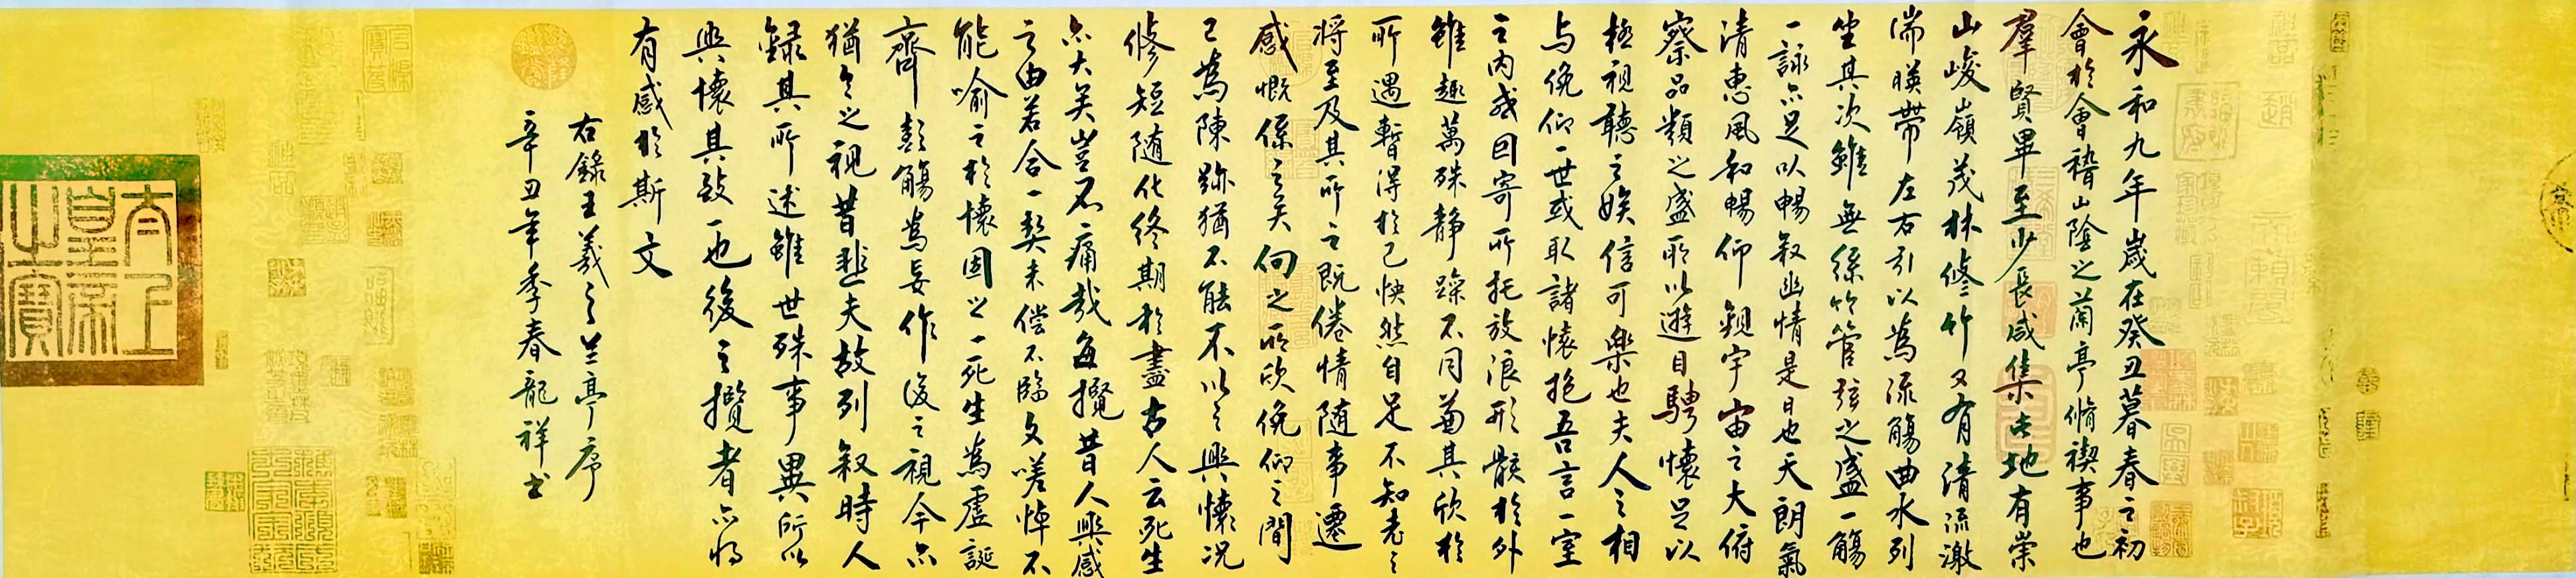 永和九年歲在癸丑暮春之初
會於會稽山陰之蘭亭脩禊事也
羣賢畢至少長咸集此地有崇
山峻嶺茂林修竹又有清流激
湍暎帶左右引以為流觴曲水列
坐其次雖無絲竹管弦之盛一觴
一詠亦足以暢叙幽情是日也天朗氣
清惠風和暢仰觀宇宙之大俯
察品類之盛所以遊目騁懷足以
極視聽之娛信可樂也夫人之相
与俛仰一世或取諸懷抱吾言一室
之内或回寄所托放浪形骸於外
雖趣萬殊靜躁不同當其欣於
所遇暫得於己怏然自足不知老之
将至及其所之既倦情随事遷
感慨係之矣向之所欣俛仰之間
已為陳跡猶不能不以之興懷況
修短随化終期於盡古人云死生
亦大矣豈不痛哉每攬昔人興感
之由若合一契未偿不臨文嗟悼不
能喻之於懷固知一死生為虛誕
齊彭觴為妄作後之視今亦
猶今之視昔悲夫故列叙時人
録其所述雖世殊事異所以
興懷其致一也後之攬者亦将
有感於斯文
右錄王羲之兰亭序
辛丑年季春龍祥书
太上皇帝之寶